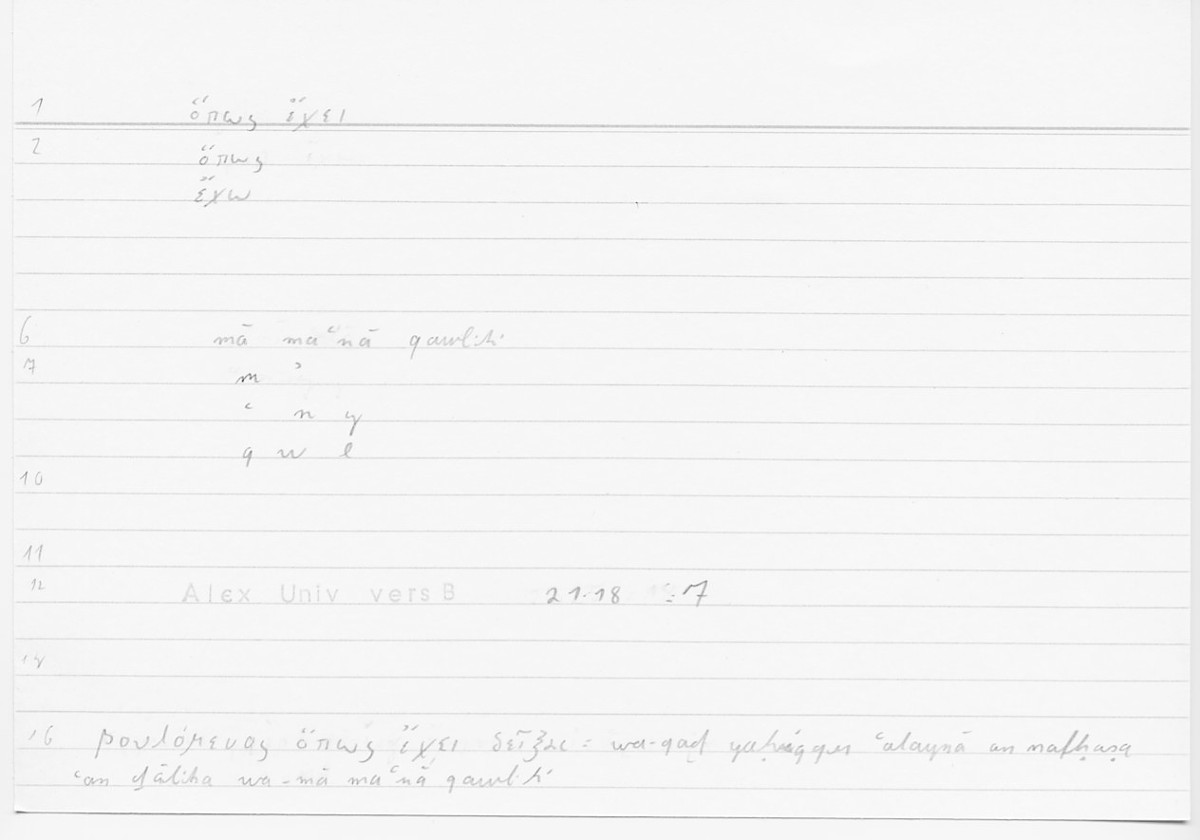 1 ὅπως ἔχει
2 ὅπως
ἔχω
6 mā maʿnā qawlihi
7 m ʾ
ʿ n y
q w l
10
11
12 Alex Univ vers B 21.18 :7
14
16 βουλόμενος ὅπως ἔχει δεῖξαι : wa-qad ʿalaynā an nafḥaṣa
ʿan ḏālika wa-mā maʿnā qawlihi